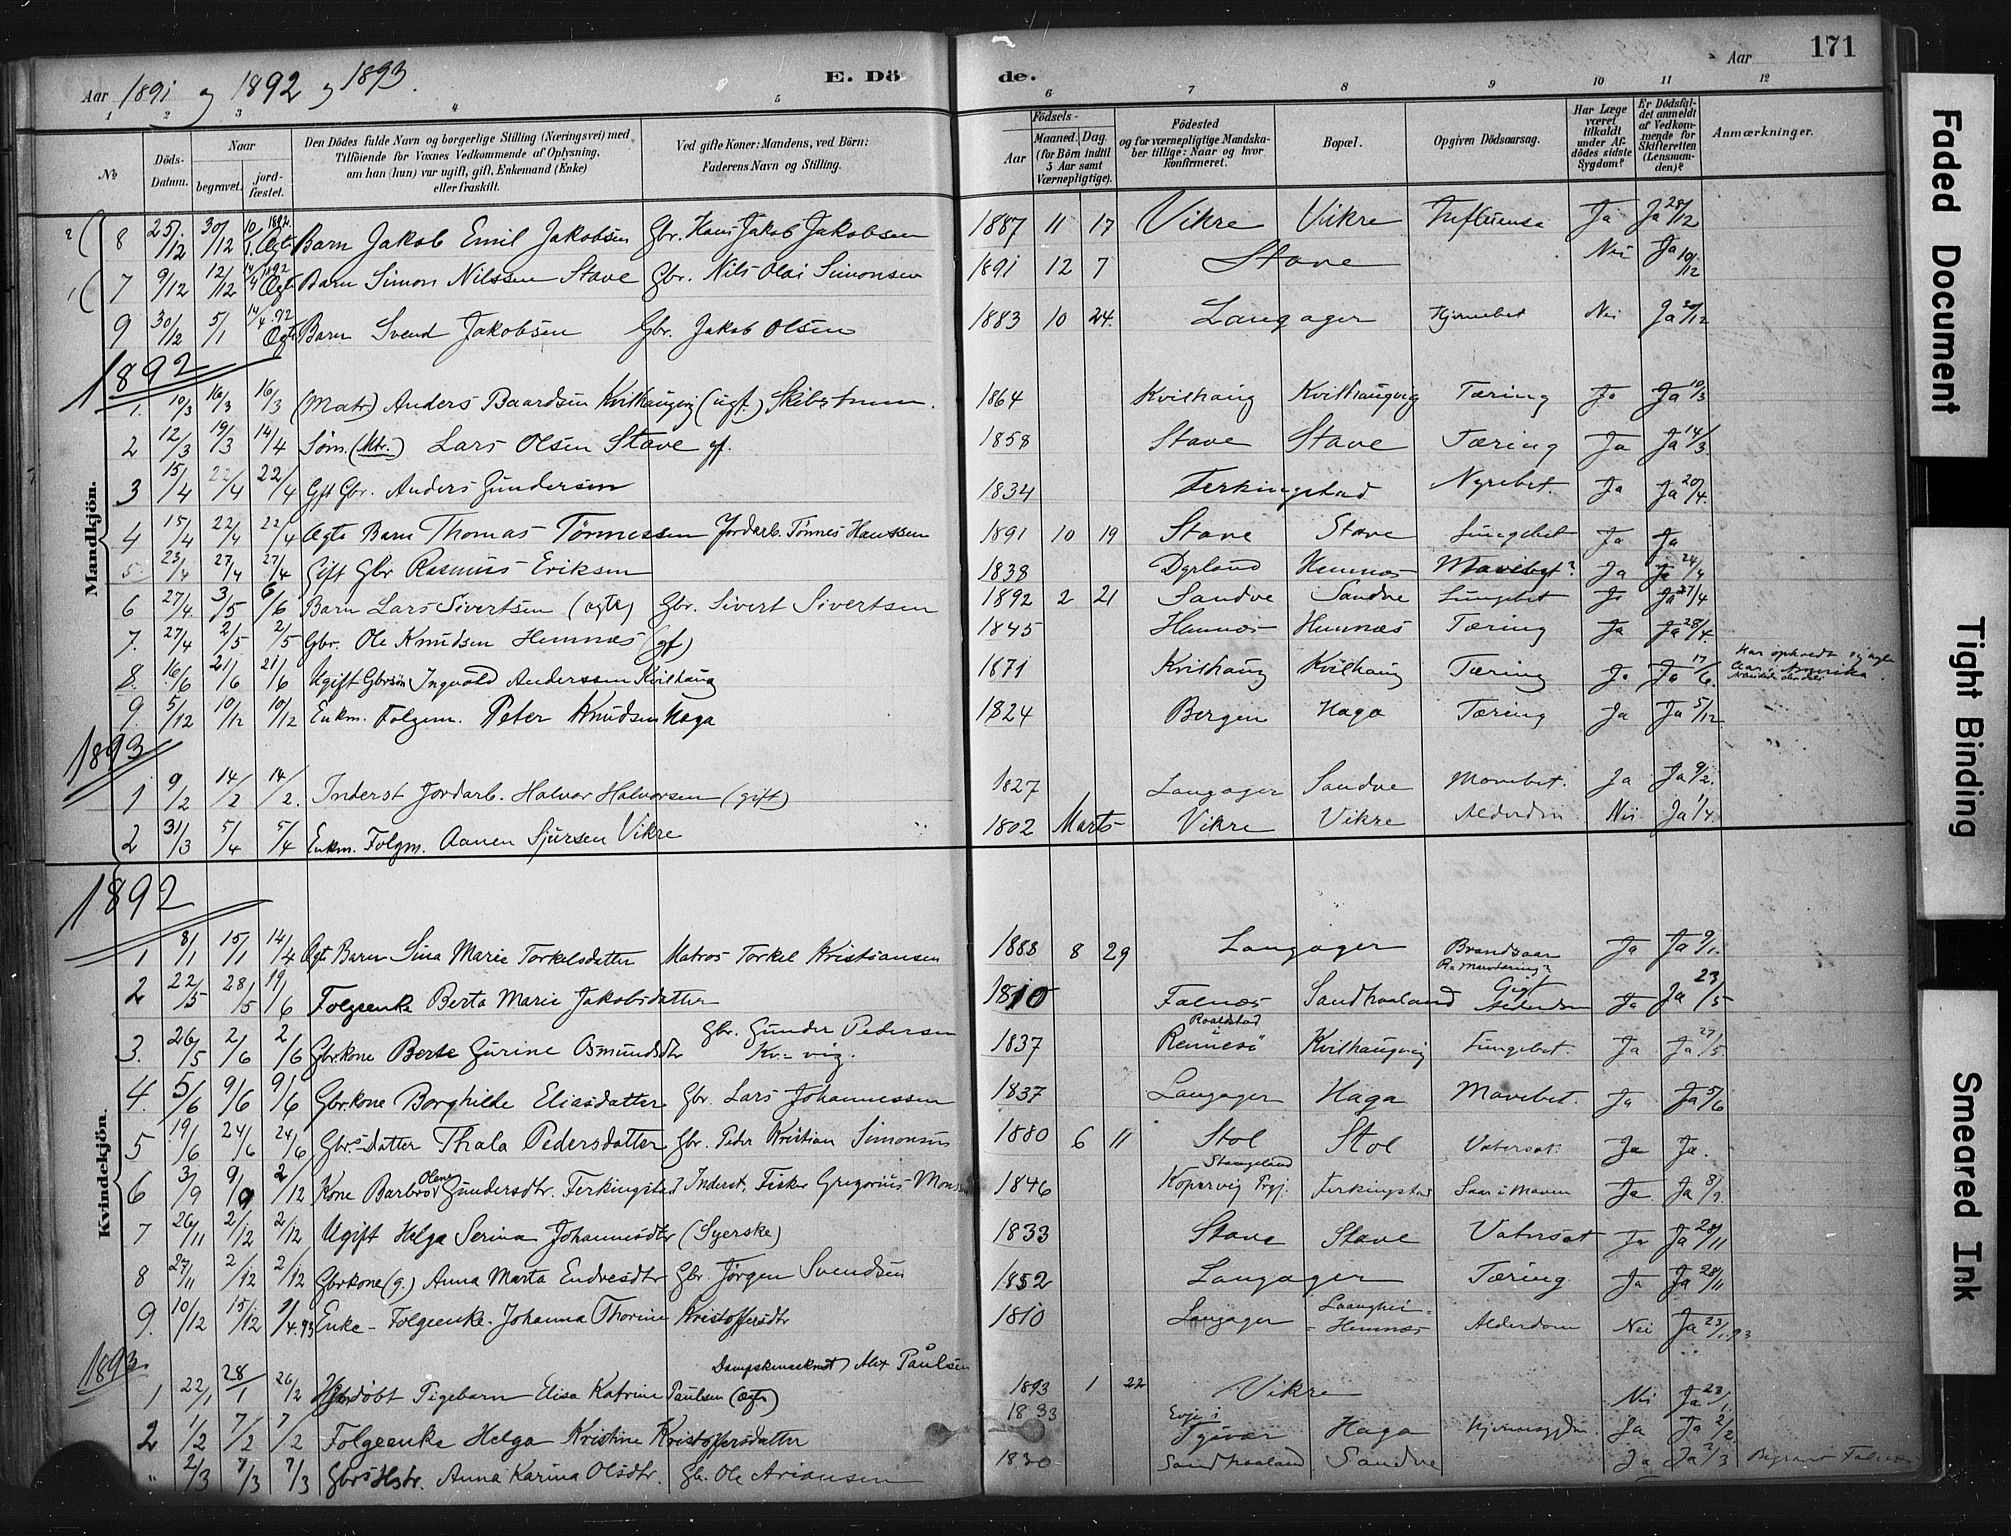 Aar 1891 og 1892 og 1893.
E. Dö de.
Aar 171
1 2 3 4 5 6 7 8 9 10 11 12
No
Döds-Datum.
Naar
begravet.
jord-fæstet.
Den Dödes fulde Navn og borgerlige Stilling (Næringsvei) med
Tilföiende for Voxnes Vedkommende af Oplysning,
om han (hun) var ugift, gift, Enkemand (Enke)
eller fraskilt.
Ved gifte Koner: Mandens, ved Börn:
Faderens Navn og Stilling.
Födsels-
Aar
Maaned. Dag.
(for Börn indtil 5 Aar samt Værnepligtige).
Födested
og for værnepligtige Mandska-
ber tillige: Naar og hvor
konfirmeret.
Bopæl.
Opgiven Dödsaarsag.
Har Læge været tilkaldt under Af-dödes sidste Sygdom?
Er Dödsfal-det anmeldt af Vedkom-mende for Skifteretten (Lensman-den)?
Anmærkninger.
Mandkjön.
8 25/12 30/12 10/1 1892 Ægte Barn Jakob Emil Jakobsen Gbr. Hans Jakob Jakobsen 1887 11 17 Vikre Vikre Influensa Ja Ja 28/12
7 9/12 12/12 14/4 1892 Ægte Barn Simon Nilssen Stave Gbr. Nils Olai Simonsen 1891 12 7 Stave Nei Ja 10/12
9 30/12 5/1 14/4 92 Ægte Barn Svend Jakobsen Gbr. Jakob Olsen 1883 10 24. Langager Hjernebet Nei Ja 30/12
1892
1. 10/3 16/3 16/3 (Matr.) Anders Baardsen Kvilhaugvig (ugf.) Skibstømm. 1864 Kvilhaug Kvilhaugvig Tæring Ja Ja 10/3
2 12/3 19/3 14/4 Søm. (Mtr.) Lars Olsen Stave gf. 1858 Stave Stave Tæring Ja Ja 14/3.
3 15/4 22/4 22/4 Gft Gbr. Anders Gundersen 1834 Ferkingstad Nyrebet. Ja Ja 20/4.
4 15/4 22/4 22/4 Ægte Barn Thomas Tönnessen Jordarb. Tönnes Hansen 1891 10 19 Stave Stave Lungebet Ja Ja
5 23/4 27/4 27/4 Gift Gbr Rasmus Eriksen 1838 Dyrland Hemnes Mavebet? Ja Ja 24/4
6 27/4 3/5 6/6 Barn Lars Sivertsen (ægte) Gbr. Sivert Sivertsen 1892 2 21 Sandve Sandve Lungebet Ja Ja 27/4
7. 27/4 2/5 2/5 Gbr. Ole Knudsen Hemnæs (gf) 1845 Hemnæs Hemnæs Tæring Ja Ja 28/4.
8. 16/6 21/6 21/6 Ugift Gbrsøn Ingvald Anderssen Kvilhaug 1871 Kvilhaug Kvilhaug Tæring Ja Ja 17/6. Har opholdt sig
Aar i Amerika.
9. 5/12 10/12 10/12 Enkm. Folgem. Peter Knudsen Haga 1824 Bergen Haga Tæring Ja Ja 5/12
1893
1 9/2 14/2 14/2. Inderst Jordarb. Halvor Halvorsen (gift) 1827 Langager Sandve Mavebet. Ja Ja 9/2.
2 31/3 5/4 5/4 Enkm. Folgm. Aanen Sjursen Vikre 1802 Marts Vikre Vikre Alderdom Nei Ja 1/4.
Kvindekjön.
1892
1 8/1 15/1 14/4 Ægt Barn Sina Marie Torkelsdatter Matros Torkel Kristiansen 1888 8 29 Langager Brandsaar Ja Ja 9/1.
2 22/5 28/5 19/6 Folgeenke Berta Marie Jakobsdatter 1810 Falnæs Sandhaaland Gigt Alderdom Ja Ja 23/5
3. 26/5 2/6 2/6 Gbrkone Berte Gurine Osmundsdtr Gbr. Gunder Pedersen
Kv=vig. 1837 Roaldstad
Rennesö Kvilhaugvig Lungebet. Ja Ja 27/5.
4. 5/6 9/6 9/6 Gbrkone Borghilde Eliasdatter Gbr. Lars Johannessen 1837 Langager Haga Mavebet. Ja Ja 5/6
5 19/6 24/6 24/6 Gbrs-datter Thala Pedersdatter Gbr. Peder Kristian Simonsen 1880 6 11 Stol Stol Vatersot. Ja Ja.
6 3/9 9/9 2/12 Kone Barbro Olene Gundersdtr. Ferkingstad Inderst, Fisker Gregorius Monsen 1846 Stangeland
Kopervig Prgj. Ferkingstad Saar i Maven Ja. Ja 8/9.
7 26/11 2/12 2/12 Ugift Helga Serina Johannesdtr (Syerske) 1833 Stave Stave Vatersot Ja Ja 28/11
8 27/11 2/12 2/12 Gbrkone (g.) Anna Marta Endresdtr Gbr. Jörgen Svendsen 1852 Langager Tæring Ja Ja 28/11
9. 10/12 15/12 9/4.93 Enke - Folgeenke. Johanna Thorine Kristoffersdtr 1810 Langager Hemnes Alderdom Nei Ja 23/1.93
1893
1 22/1 28/1 26/2 Hjdøbt Pigebarn Elisa Katrine Paulsen (ægte) Alex Paulsen 1893 1 22 Vikre Nei Ja 23/1
2 1/2 7/2 7/2 Folgeenke Helga Kristine Kristoffersdatter 1833 Haga Hjernesygdm Ja Ja 2/2
" 2/3 7/3 7/3 Gbrs Hstr. Anna Karina Olsdtr. Gb. Ole Ariansen 1830 Sandhaaland Sandve Ja Ja 2/3
Faded Document
Tight Binding
Smeared Ink